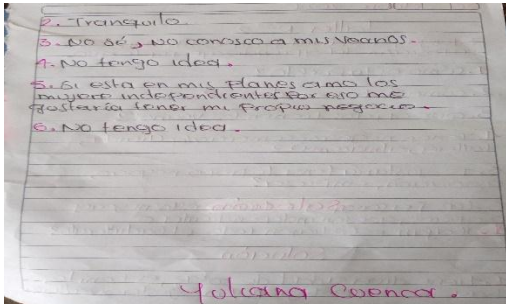 2. Tranquilo
3. No sé, No conosco a mis Veanos.
4. No tengo idea.
5. Si esta en mis Planes amo las
mujer independientes Por eso me
gustaría tener mi Propio negocio.
6. No tengo idea.
Yuliana Cuenca.